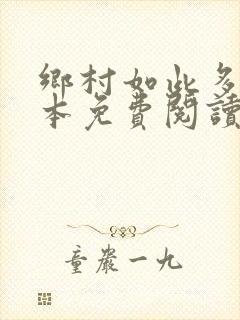 鄉村如此多
本免費閱讀
童嚴一九